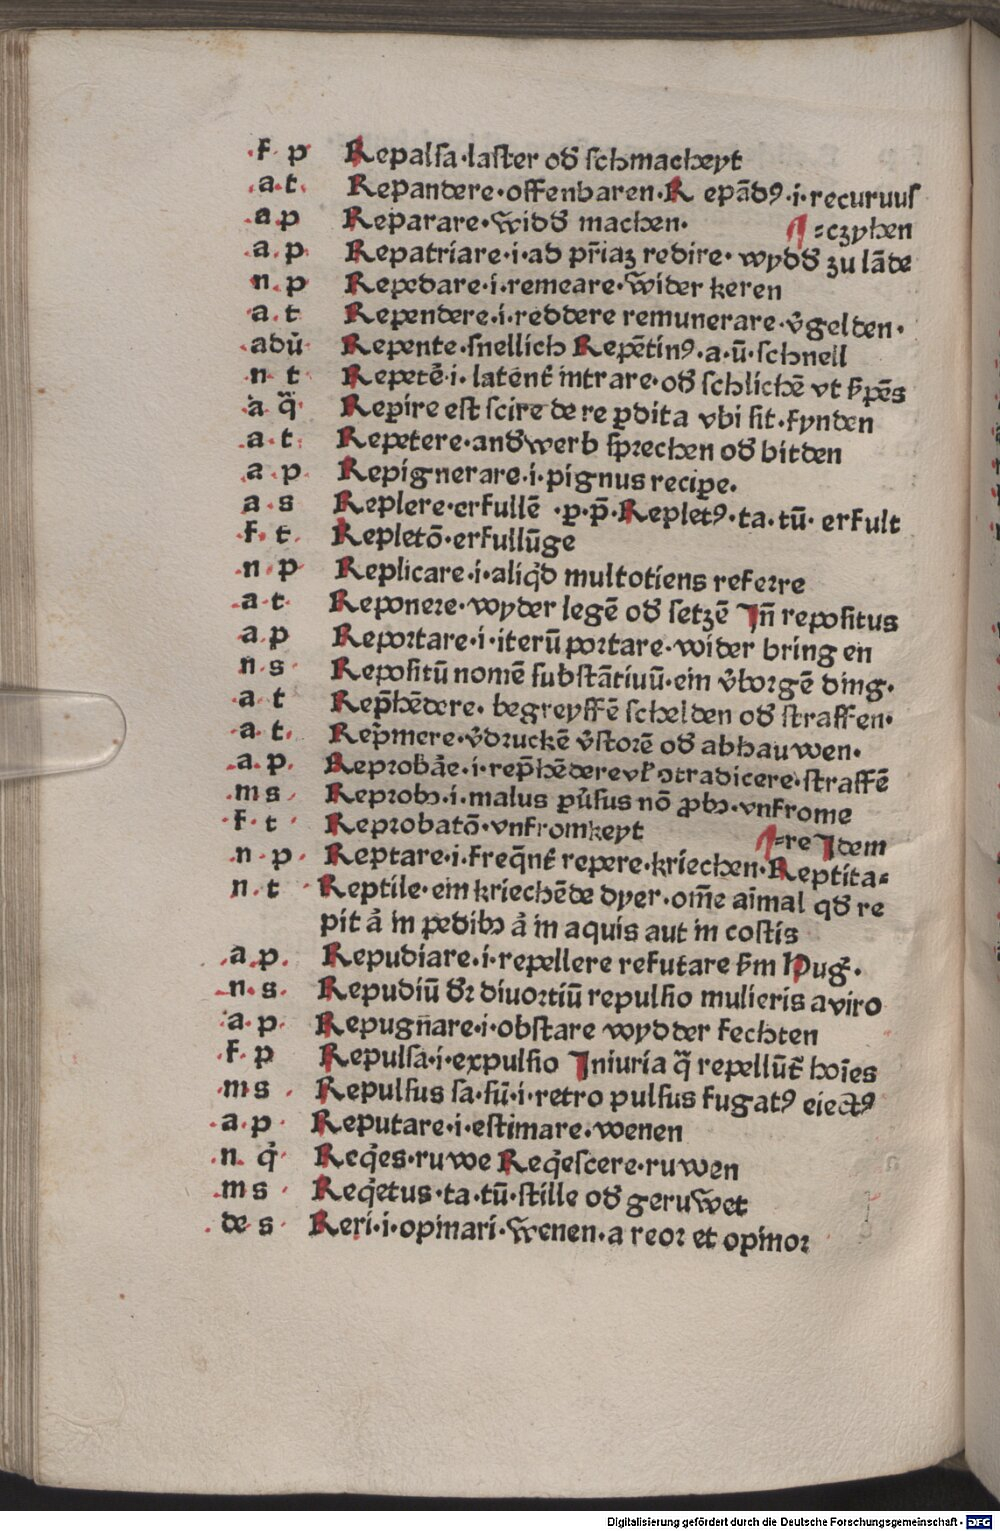 .f. p Repalsa·laster od̛ schmacheyt
.a.t. Repandere·offenbaren·Repādꝰ·i·recuruus
.a.p Reparare·wid̛d̛ machen· ¶=czyhen
.a.p. Repatriare·i·ad pr̄iaꝫ redire· wydd̛ zu lāde
.n.p Repedare·i·remeare·wider keren
.a.t Rependere·i·reddere remunerare·v̛gelden·
.adū Repente·snellich Repētinꝰ·a·ū·schnell
.n t Repetē·i·latent̄ intrare·od̛ schlichē vt s̛pēs
.a q̄ Repire est scire de re ꝑdita vbi sit·fynden
.a.t. Repetere·and̛werb sprechen od̛ bitden
.a.p. Repignerare·i·pignus recipe.
a.s Replere·erfullē ·ꝑ·p̄·Repletꝰ·ta·tū· erfult
.f.t. Repletō·erfullūge
.n.p Replicare·i·aliq̛d multotiens referre
.a.t. Reponere·wyder legē od̛ setzē Jn̄ repositus
.a.p Reportare·i·iterū portare·wider bring en
.n.s. Repositū nomē substātiuū·ein v̛borgē ding·
.a.t Rep̄hēdere· begreyffē schelden od̛ straffen·
.a t. Rep̛mere·v̛druckē v̛storē od̛ abhauwen·
.a.p. Reprobāe·i·rep̄hēdere vl̛ ꝯtradicere·straffē
.m s. Reprobꝫ·i·malus ꝑưsus nō ꝓbꝫ·vnfrome
.f.t. Reprobatō·vnfromkeyt ¶=re Jdem
.n.p. Reptare·i·freq̄nt̄ repere·kriechen·Reptita=
n.t Reptile·ein kriechēde dyer·om̄e aīmal qd̛ re
pit a̛ in pedibꝫ a̛ in aquis aut in costis
.a.p. Repudiare·i·repellere refutare s̛m Hug̛·
.n.s. Repudiū d̛r diuortiū repulsio mulieris a viro
.a.p. Repugnare·i·obstare wydder fechten
.f.p Repulsa·i·expulsio Jniuria q̄ repellūt̄ hoīes
.m s. Repulsus sa·sū·i·retro pulsus fugatꝰ eiectꝰ
.a.p. Reputare·i·estimare·wenen
.n. q̛ Req̛es·ruwe Req̛escere·ruwen
.m s. Req̛etus·ta·tū·stille od̛ geruwet
.de s. Reri·i·opinari·wenen·a reor et opinor
Digitalisierung gefördert durch die Deutsche Forschungsgemeinschaft - DFG